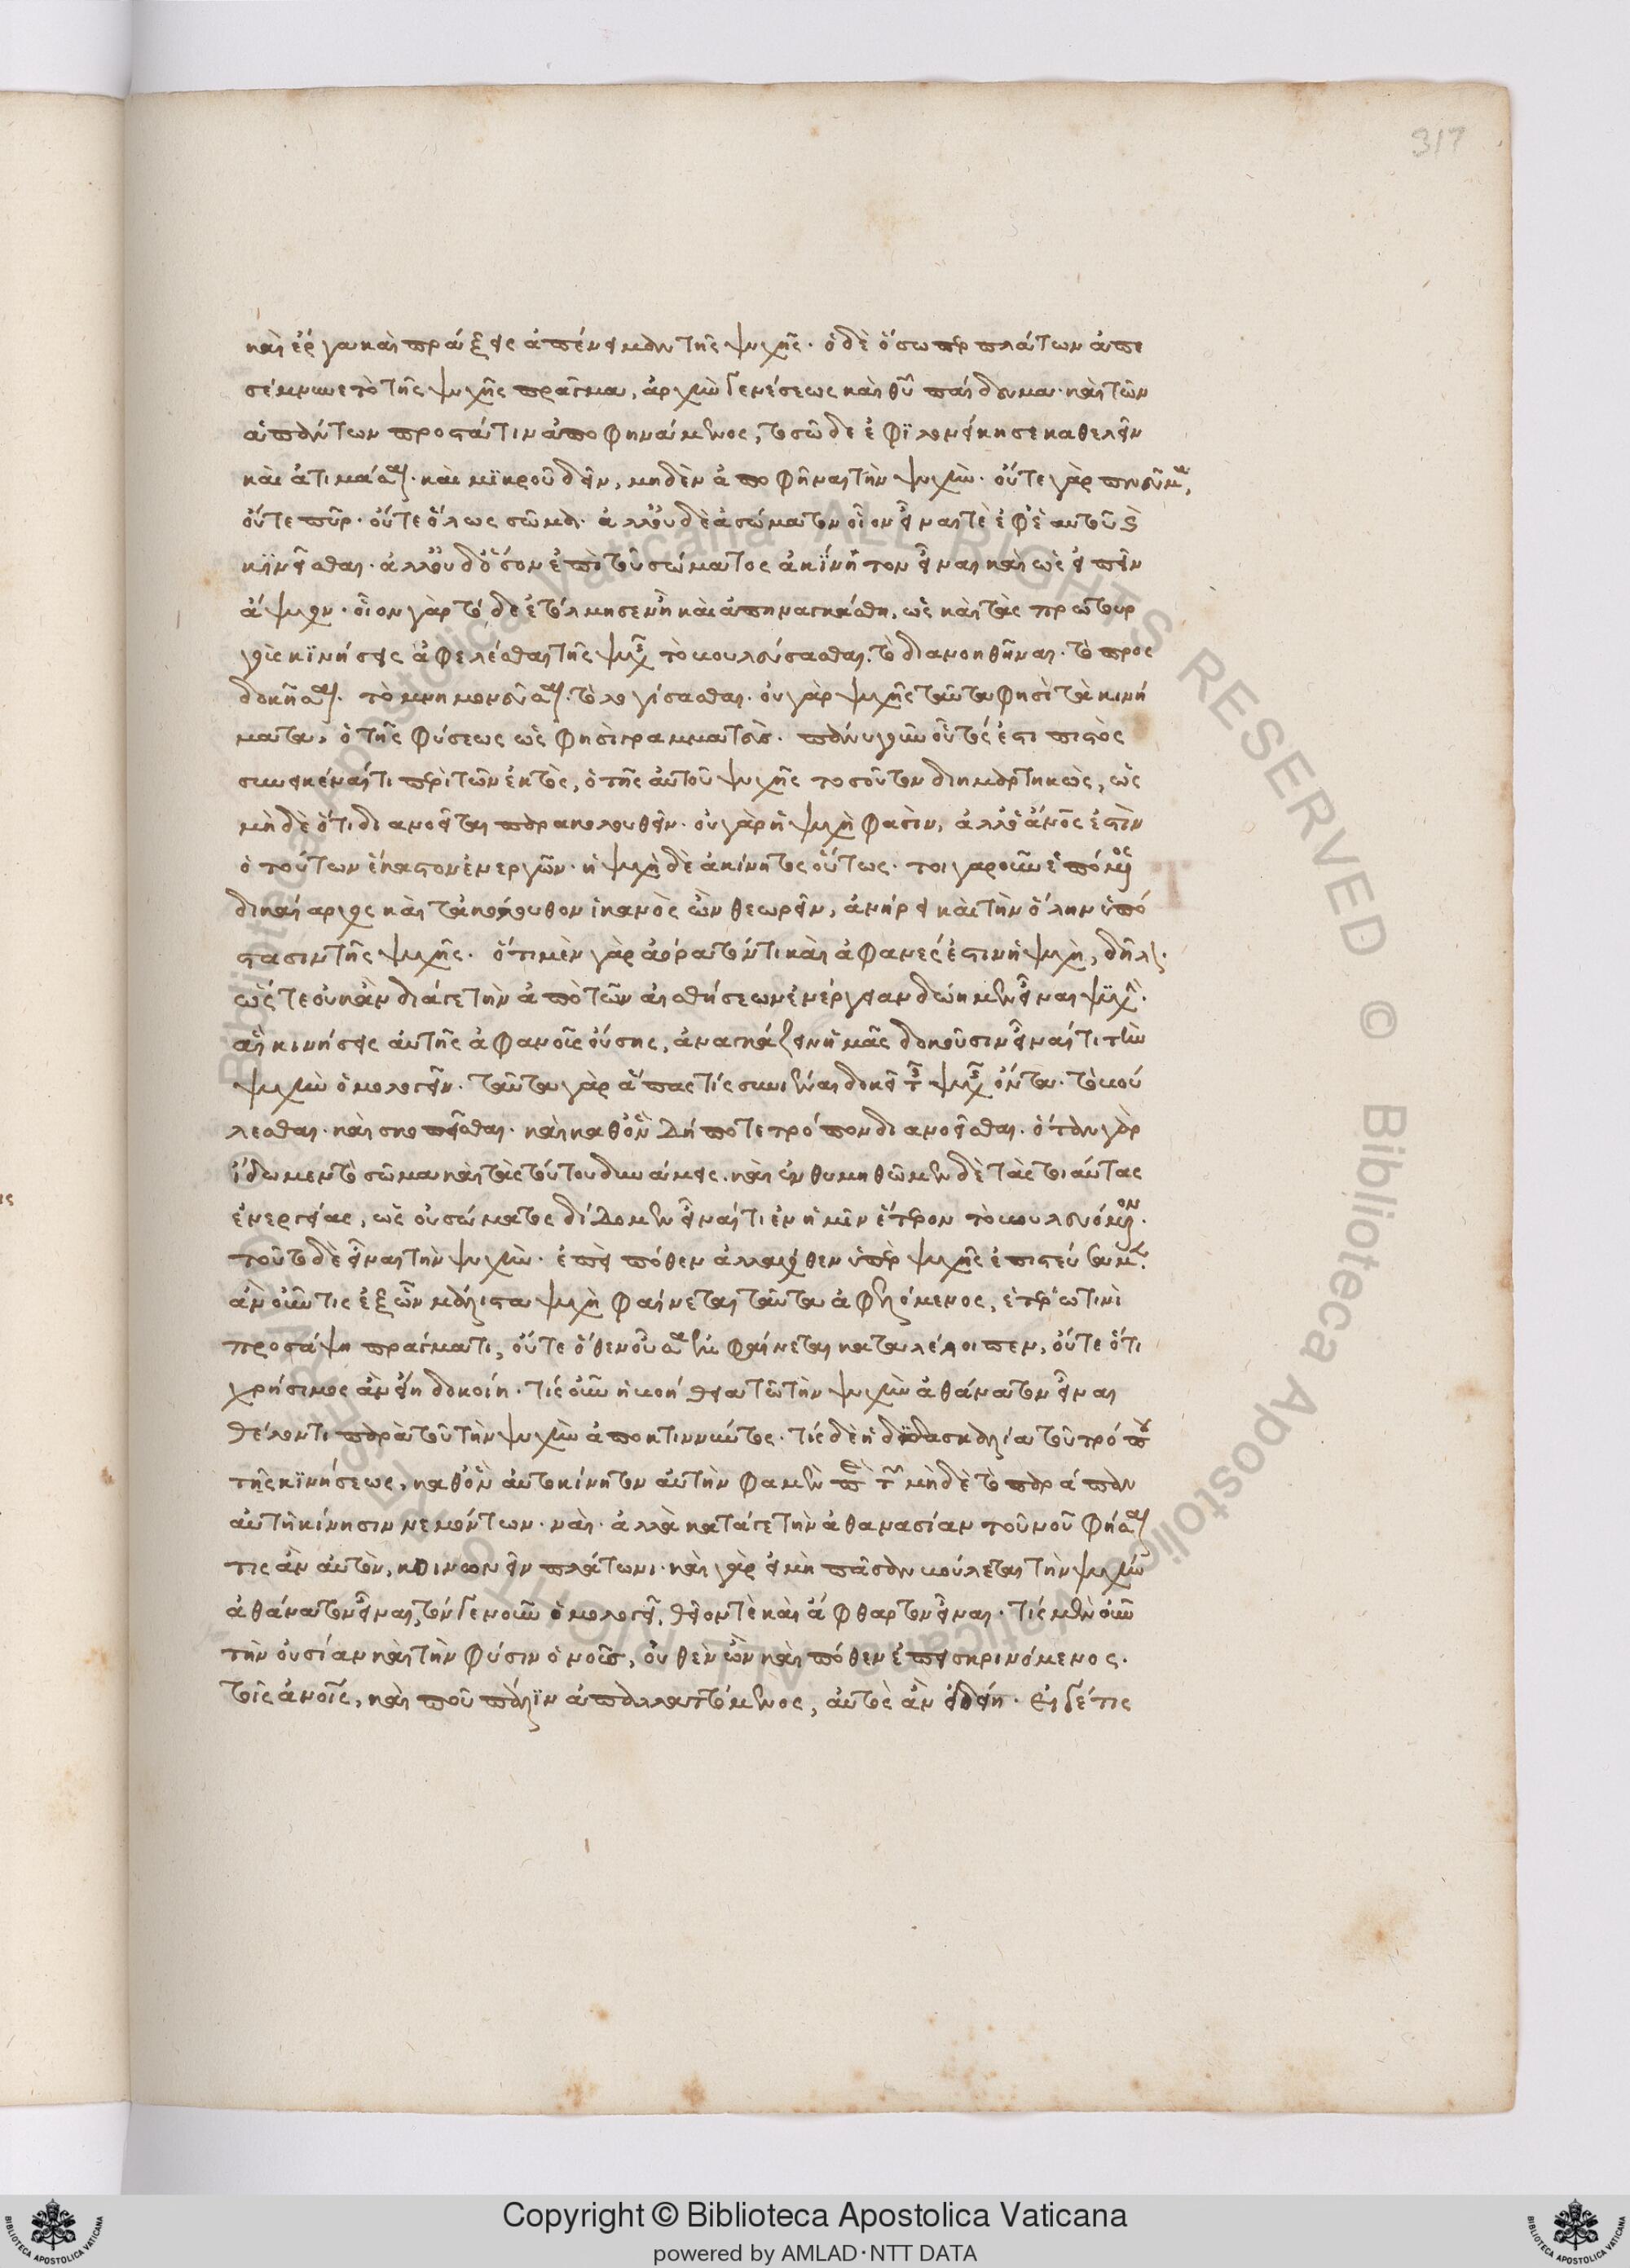 317
καὶ ἔργα καὶ πράξεις ἀπένειμαν τῆς ψυχῆς. ὁ δὲ ὅσωπερ πλάτων ἀπε
σέμνυνε τὸ τῆς ψυχῆς πρᾶγμα, ἀρχὴν γενέσεως καὶ θεοῦ παίδευμα. καὶ τῶν
ἁπάντων προστάτιν ἀποφηνάμενος, τοσῶδε ἐφιλονείκησε καθελεῖν
καὶ ἀτιμάσαι. καὶ μικροῦ δεῖν, μηδὲν ἀποφῆναι τὴν ψυχήν. οὔτε γὰρ πνεῦμα,
οὔτε πῦρ. οὔτε ὅλως σῶμα. ἀλλ' οὐδὲ ἀσώματον οἷον εἶναί τε ἐφ' ἑαυτοῦ καὶ
κινεῖσθαι. ἀλλ' οὐδ' ὅσον ἐπὶ τοῦ σώματος ἀκίνητον εἶναι καὶ ὡς εἰπεῖν
ἄψυχον. οἷον γὰρ τό δε ἐτόλμησεν ἢ καὶ ἀπηναγκάσθη, ὡς καὶ τὰς πρωτουρ
γοὺς κινήσεις ἀφελέσθαι τῆς ψυχῆς τὸ βουλεύσασθαι. τὸ διανοηθῆναι. τὸ προς
δοκῆσαι. τὸ μνημονεῦσαι. τὸ λογίσασθαι. οὐ γὰρ ψυχῆς ταῦτα φησὶ τὰ κινή
ματα, ὁ τῆς φύσεως ὥς φησι γραμματεύς. πάνυ γοῦν οὗτός ἐστι πιστὸς
συνεικέναί τι περὶ τῶν ἐκτὸς, ὁ τῆς αὐτοῦ ψυχῆς τοσοῦτον διημαρτηκὼς, ὡς
μὴ δὲ ὅτι διανοεῖται παρακολουθεῖν. οὐ γὰρ ἡ ψυχὴ φασὶν, ἀλλ' ὁ ἄνθρωπός ἐστιν
ὁ τούτων ἕκαστον ἐνεργῶν. ἡ ψυχὴ δὲ ἀκίνητος οὕτως. τοιγαροῦν ἑπόμενος
δικαίαρχος καὶ τἀκόλουθον ἱκανὸς ὢν θεωρεῖν, ἀνήρει καὶ τὴν ὅλην ὑπό
στασιν τῆς ψυχῆς. ὅτι μὲν γὰρ ἀόρατόν τι καὶ ἀφανές ἐστιν ἡ ψυχὴ, δῆλον.
ὥστε οὐκ ἂν διάγε τὴν ἀπὸ τῶν αἰσθήσεων ἐνέργειαν δώημεν εἶναι ψυχήν.
αἱ κινήσεις αὐτῆς ἀφανοῦς οὔσης, ἀναγκάζειν ἡμᾶς δοκοῦσιν εἶναί τι τὴν
ψυχὴν ὁμολογεῖν. ταῦτα γὰρ ἅπας τίς συνιέναι δοκεῖ τῆς ψυχῆς ὄντα. τὸ βού
λεσθαι. καὶ σκοπεῖσθαι. καὶ καθ' ὃν δή ποτε τρόπον διανοεῖσθαι. ὅταν γὰρ
ἴδωμεν τὸ σῶμα καὶ τὰς τούτου δυνάμεις. καὶ ἐνθυμηθῶμεν δὲ τὰς τοιαύτας
ἐνεργείας, ὡς οὐ σώματος δίδομεν εἶναί τι ἐν ἡμῖν ἕτερον τὸ βουλευόμενον.
τοῦτο δὲ εἶναι τὴν ψυχήν. ἐπεὶ πόθεν ἀλλαχόθεν ὑπὲρ ψυχῆς ἐπιστεύσαμεν.
ἂν οὖν τις ἐξ ὧν μάλιστα ψυχὴ φαίνεται ταῦτα ἀφελόμενος, ἑτέρω τινὶ
προσάψη πράγματι, οὔτε ὅθεν οὖσα ἦν φαίνεται καταλέλοιπεν, οὔτε ὅτι
χρήσιμος ἂν εἴη δοκοίη. τίς οὖν ἡ βοήθεια τῶ τὴν ψυχὴν ἀθάνατον εἶναι
θέλοντι παρὰ τοῦ τὴν ψυχὴν ἀποκτιννύντος. τίς δὲ ἡ διδασκαλία τοῦ τρόπου
τῆς κινήσεως, καθ' ὃν αὐτοκίνητον αὐτὴν φαμὲν παρὰ τῶν μὴ δὲ τὸ παράπαν
αὐτῆ κίνησιν νεμόντων. ναὶ. ἀλλὰ κατάγε τὴν ἀθανασίαν τοῦ νοῦ φήσαι
τις ἂν αὐτὸν, κοινωνεῖν πλάτωνι. καὶ γὰρ εἰ μὴ πᾶσαν βούλεται τὴν ψυχὴν
ἀθάνατον εἶναι, τόν γε νοῦν ὁμολογεῖ, θεῖόν τε καὶ ἄφθαρτον εἶναι. τίς μὲν οὖν
τὴν οὐσίαν καὶ τὴν φύσιν ὁ νοῦς, ὅθεν ὢν καὶ πόθεν ἐπεισκρινόμενος.
τοῖς ἀνθρώποις, καὶ ποῦ πάλιν ἀπαλλαττόμενος, αὐτὸς ἂν εἰδείη. εἴγέ τις